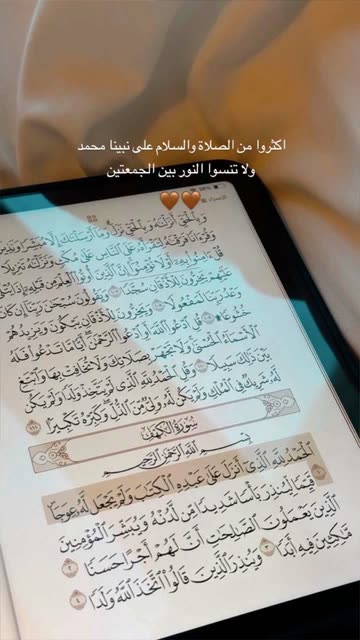 اكثروا من الصلاة والسلام على نبينا محمد
ولا تنسوا النور بين الجمعتين
🧡🧡
وَبِٱلْحَقِّ أَنزَلْنَٰهُ وَبِٱلْحَقِّ نَزَلَ وَمَآ أَرْسَلْنَٰكَ إِلَّا مُبَشِّرًا وَنَذِيرًا
وَقُرْءَانًا فَرَقْنَٰهُ لِتَقْرَأَهُۥ عَلَى ٱلنَّاسِ عَلَىٰ مُكْثٍ وَنَزَّلْنَٰهُ تَنزِيلًا
قُلْ ءَامِنُوا۟ بِهِۦٓ أَوْ لَا تُؤْمِنُوٓا۟ إِنَّ ٱلَّذِينَ أُوتُوا۟ ٱلْعِلْمَ مِن قَبْلِهِۦٓ إِذَا يُتْلَىٰ
عَلَيْهِمْ يَخِرُّونَ لِلْأَذْقَانِ سُجَّدًا وَيَقُولُونَ سُبْحَٰنَ رَبِّنَآ إِن كَانَ
وَعْدُ رَبِّنَا لَمَفْعُولًا وَيَخِرُّونَ لِلْأَذْقَانِ يَبْكُونَ وَيَزِيدُهُمْ
خُشُوعًا قُلِ ٱدْعُوا۟ ٱللَّهَ أَوِ ٱدْعُوا۟ ٱلرَّحْمَٰنَ أَيًّا مَّا تَدْعُوا۟ فَلَهُ
ٱلْأَسْمَآءُ ٱلْحُسْنَىٰ وَلَا تَجْهَرْ بِصَلَاتِكَ وَلَا تُخَافِتْ بِهَا وَٱبْتَغِ
بَيْنَ ذَٰلِكَ سَبِيلًا وَقُلِ ٱلْحَمْدُ لِلَّهِ ٱلَّذِى لَمْ يَتَّخِذْ وَلَدًا وَلَمْ يَكُن
لَّهُۥ شَرِيكٌ فِى ٱلْمُلْكِ وَلَمْ يَكُن لَّهُۥ وَلِىٌّ مِّنَ ٱلذُّلِّ وَكَبِّرْهُ تَكْبِيرًۢا ١١١
سُورَةُ الكَهْفِ
بِسْمِ ٱللَّهِ ٱلرَّحْمَٰنِ ٱلرَّحِيمِ
ٱلْحَمْدُ لِلَّهِ ٱلَّذِىٓ أَنزَلَ عَلَىٰ عَبْدِهِ ٱلْكِتَٰبَ وَلَمْ يَجْعَل لَّهُۥ عِوَجَا ١
قَيِّمًا لِّيُنذِرَ بَأْسًا شَدِيدًا مِّن لَّدُنْهُ وَيُبَشِّرَ ٱلْمُؤْمِنِينَ
ٱلَّذِينَ يَعْمَلُونَ ٱلصَّٰلِحَٰتِ أَنَّ لَهُمْ أَجْرًا حَسَنًا ٢
مَّٰكِثِينَ فِيهِ أَبَدًا ٣ وَيُنذِرَ ٱلَّذِينَ قَالُوا۟ ٱتَّخَذَ ٱللَّهُ وَلَدًا ٤